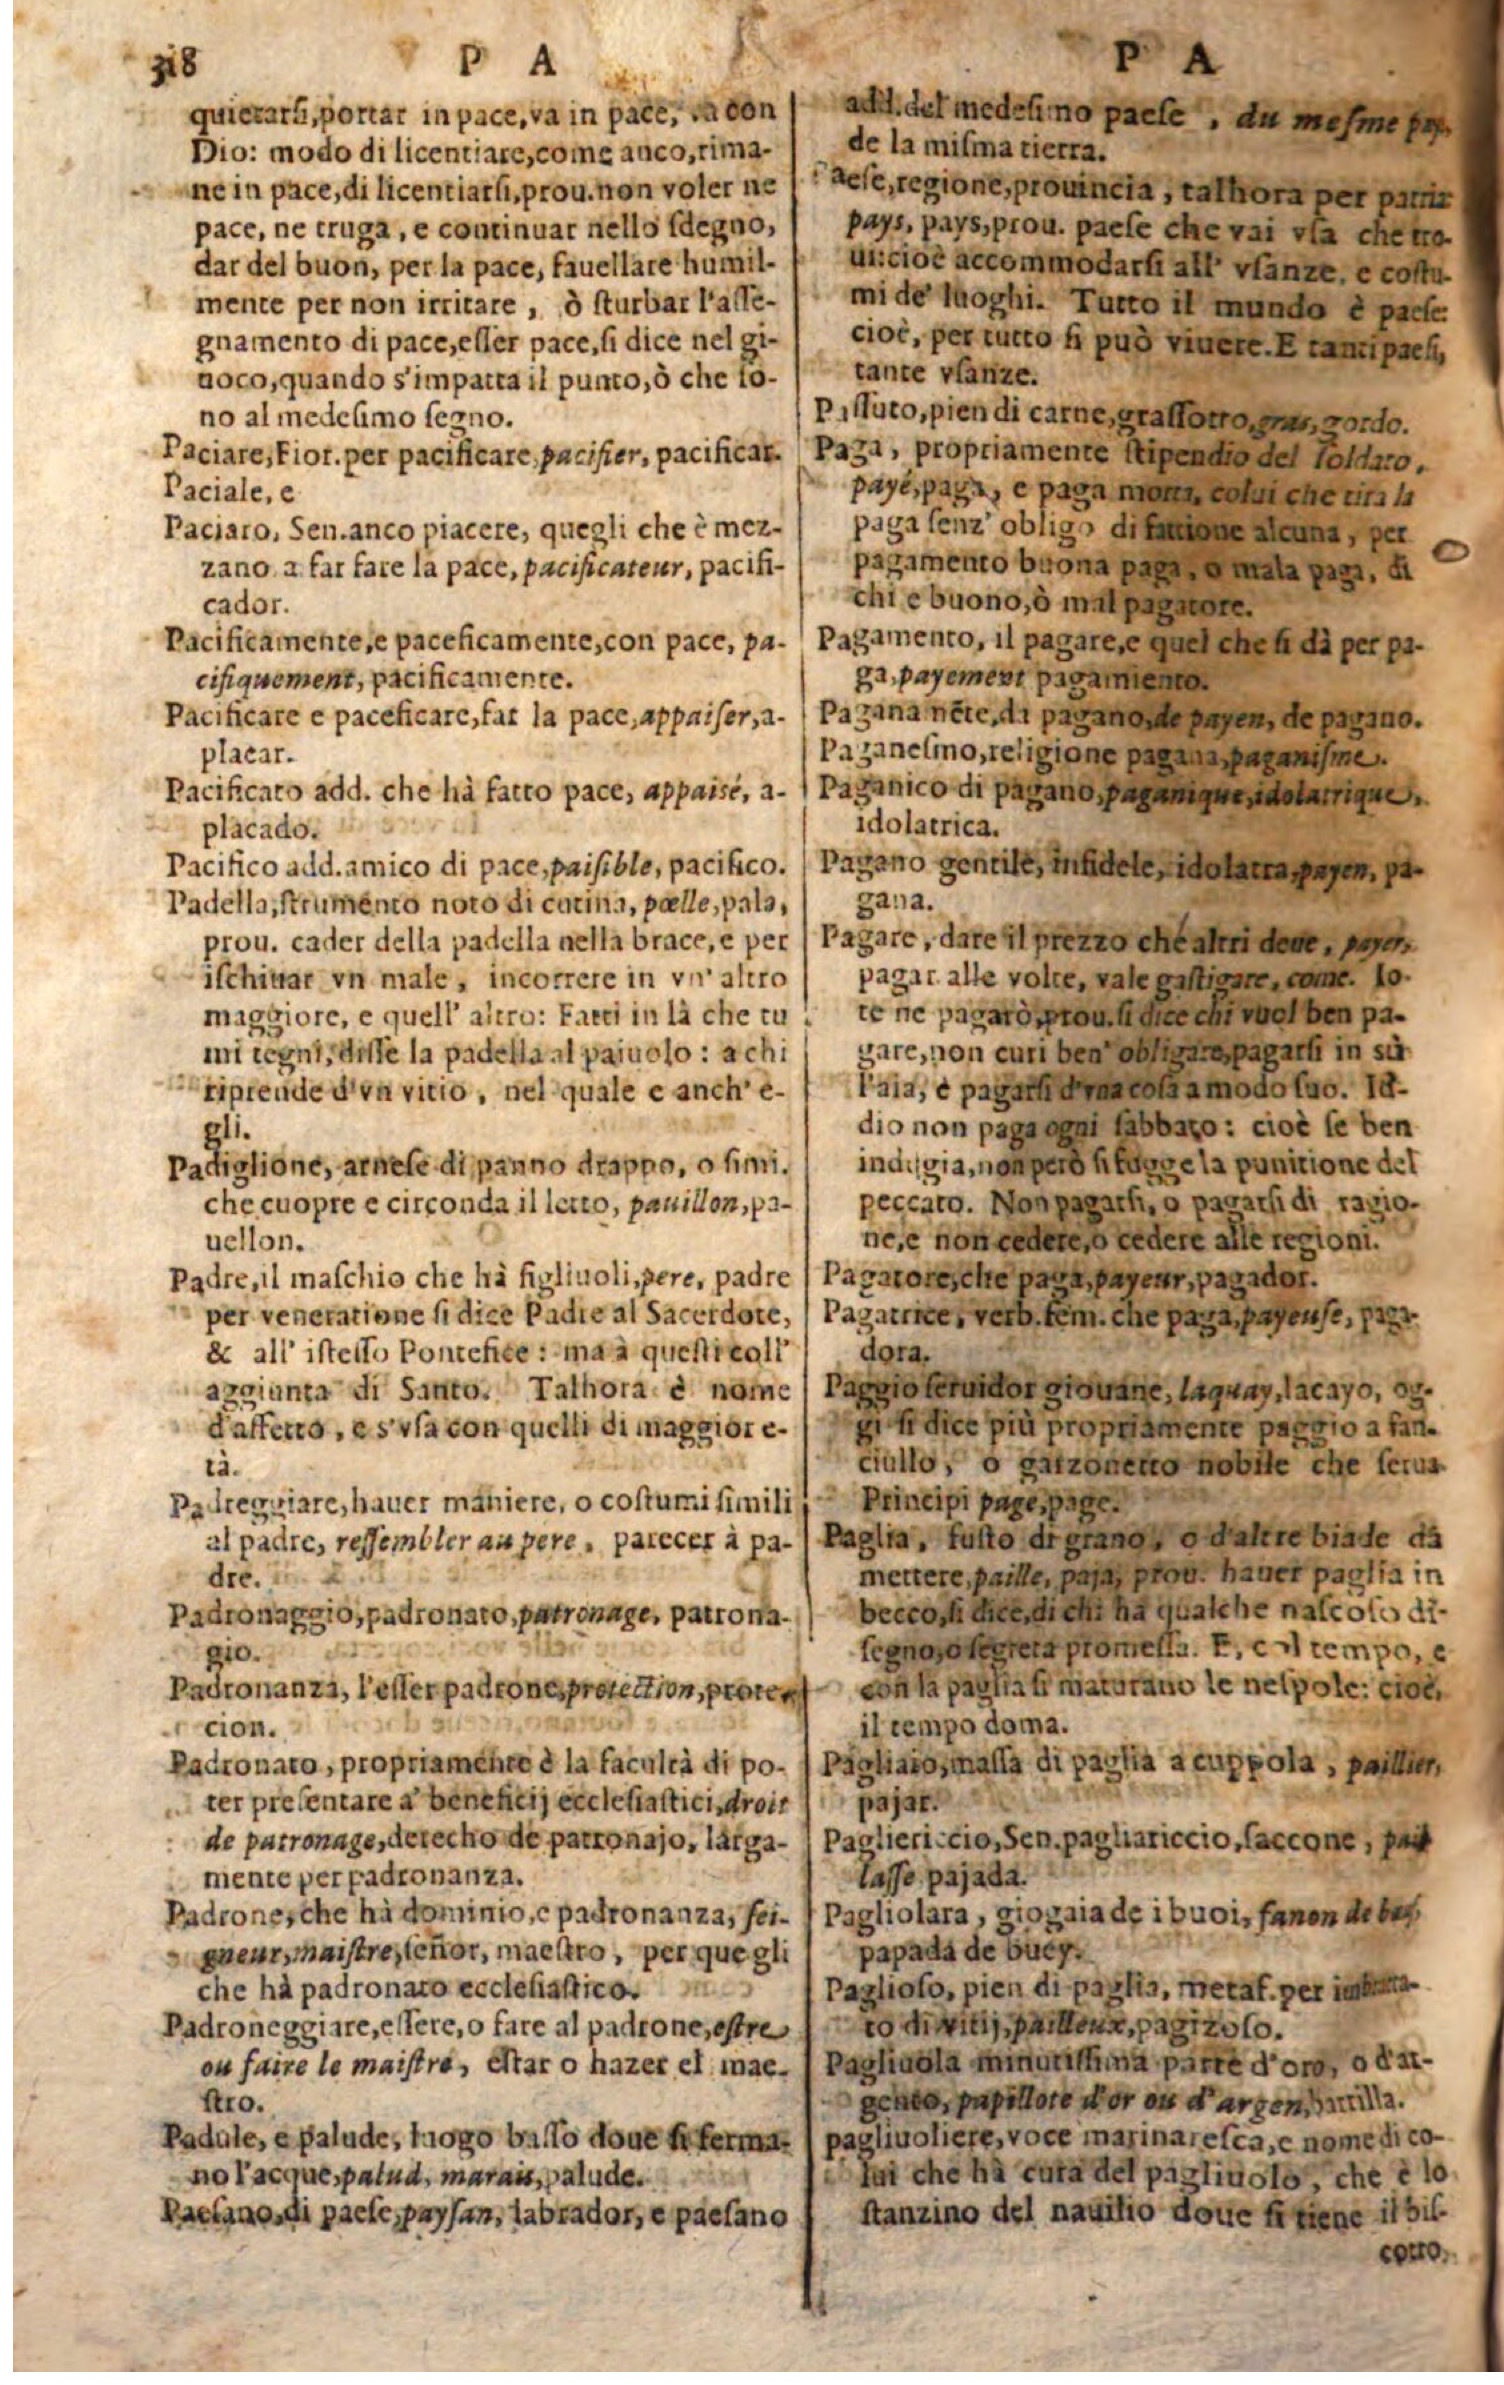 318 P A
quietarſi,portar in pace,va in pace, va con
Dio: modo di licentiare,come anco,rima-
ne in pace,di licentiarſi,prou.non voler ne
pace, ne truga, e continuar nello ſdegno,
dar del buon, per la pace, fauellare humil-
mente per non irritare, ò ſturbar l'aſſe-
gnamento di pace,eſſer pace,ſi dice nel gi-
uoco,quando s'impatta il punto,ò che ſo-
no al medeſimo ſegno.
Paciare,Fior.per pacificare,pacifier, pacificar.
Paciale, e
Paciaro, Sen.anco piacere, quegli che è mez-
zano a far fare la pace, pacificateur, pacifi-
cador.
Pacificamente,e paceficamente,con pace, pa-
cifiquement, pacificamente.
Pacificare e paceficare,far la pace,appaiſer,a-
placar.
Pacificato add. che hà fatto pace, appaisé, a-
placado.
Pacifico add.amico di pace,paiſible, pacifico.
Padella,ſtrumento noto di cucina, pœlle,pala,
prou. cader della padella nella brace,e per
iſchiuar vn male, incorrere in vn' altro
maggiore, e quell' altro: Fatti in là che tu
mi tegni,diſſe la padella al paiuolo: a chi
riprende d'vn vitio, nel quale e anch' e-
gli.
Padiglione, arneſe di panno drappo, o ſimi.
che cuopre e circonda il letto, pauillon,pa-
uellon.
Padre,il maſchio che hà figliuoli,pere, padre
per veneratione ſi dice Padre al Sacerdote,
& all' iſteſſo Pontefice: ma à queſti coll'
aggiunta di Santo. Talhora è nome
d'affetto, e s'vſa con quelli di maggior e-
tà.
Padreggiare,hauer maniere, o coſtumi ſimili
al padre, reſſembler au pere, parecer à pa-
dre.
Padronaggio,padronato,patronage, patrona-
gio.
Padronanza, l'eſſer padrone,protection,protec-
cion.
Padronato, propriamente è la facultà di po-
ter preſentare a' beneficij eccleſiaſtici,droit
de patronage,derecho de patronajo, larga-
mente per padronanza.
Padrone,che hà dominio,e padronanza, ſei-
gneur,maiſtre,ſeñor, maeſtro, per quegli
che hà padronato eccleſiaſtico.
Padroneggiare,eſſere,o fare al padrone,eſtre
ou faire le maiſtre, eſtar o hazer el mae-
ſtro.
Padule, e palude, luogo baſſo doue ſi ferma-
no l'acque,palud, marais,palude.
Paeſano,di paeſe,payſan, labrador, e paeſano
P A
add.del medeſimo paeſe, du meſme pay,
de la miſma tierra.
Paeſe,regione,prouincia, talhora per patria
pays, pays,prou. paeſe che vai vſa che tro-
ui:cioè accommodarſi all' vſanze, e coſtu-
mi de' luoghi. Tutto il mundo è paeſe:
cioè, per tutto ſi può viuere.E tanti paeſi,
tante vſanze.
Paſſuto,pien di carne,graſſotto,gras,gordo.
Paga, propriamente ſtipendio del ſoldato,
payé,paga, e paga morta, colui che tira la
paga ſenz' obligo di fattione alcuna, per
pagamento buona paga, o mala paga, di
chi e buono,ò mal pagatore.
Pagamento, il pagare,e quel che ſi dà per pa-
ga,payement pagamiento.
Pagana nēte,da pagano,de payen, de pagano.
Paganeſmo,religione pagana,paganiſme.
Paganico di pagano,paganique,idolatrique,
idolatrica.
Pagano gentile, infidele, idolatra,payen, pa-
gana.
Pagare, dare il prezzo che altri deue, payer,
pagar. alle volte, vale gaſtigare, come. Io
te ne pagarò,prou.ſi dice chi vuol ben pa-
gare,non curi ben' obligare,pagarſi in sù
l'aia, è pagarſi d'vna coſa a modo ſuo. Id-
dio non paga ogni ſabbato: cioè ſe ben
indugia,non però ſi fugge la punitione del
peccato. Non pagarſi, o pagarſi di ragio-
ne,e non cedere,o cedere alle regioni.
Pagatore,che paga,payeur,pagador.
Pagatrice, verb.fem. che paga,payeuſe, paga-
dora.
Paggio ſeruidor giouane, laquay,lacayo, og-
gi ſi dice più propriamente paggio a fan-
ciullo, o garzonetto nobile che ſerua
Principi page,page.
Paglia, fuſto di grano, o d'altre biade da
mettere,paille, paja, prou. hauer paglia in
becco,ſi dice,di chi ha qualche naſcoſo di-
ſegno,o ſegreta promeſſa. E, col tempo, e
con la paglia ſi maturano le neſpole: cioè,
il tempo doma.
Pagliaio,maſſa di paglia a cuppola, paillier,
pajar.
Pagliericcio,Sen.pagliariccio,ſaccone, pail
laſſe pajada.
Pagliolara, giogaia de i buoi, fanon de beſ,
papada de buey.
Paglioſo, pien di paglia, metaf.per imbratta-
to di vitij,pailleux,pagizoſo.
Pagliuola minutiſſima parte d'oro, o d'ar-
gento, papillote d'or ou d'argen,
pagliuoliere,voce marinareſca,e nome di co-
lui che hà cura del pagliuolo, che è lo
ſtanzino del nauilio doue ſi tiene il biſ-
cotto,